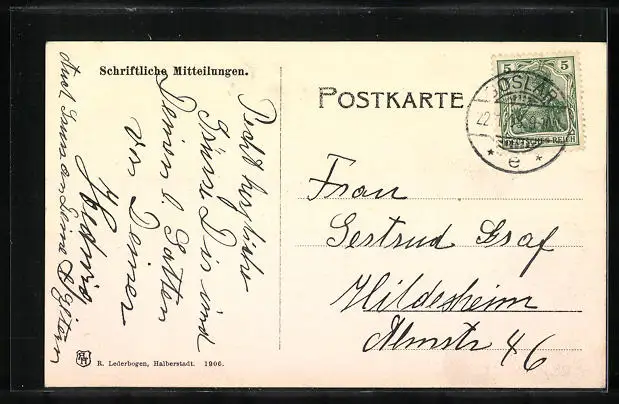 Schriftliche Mitteilungen.
POSTKARTE
5 5
DEUTSCHES REICH
GOSLAR
22
* e *
Recht herzliche
Grüsse Dir und
Deinem l. Gatten
von Deiner
Hedwig
Auch Gruss an Deine l. Eltern
Frau
Gertrud Graf
Hildesheim
Almstr 46
R. Lederbogen, Halberstadt. 1906.